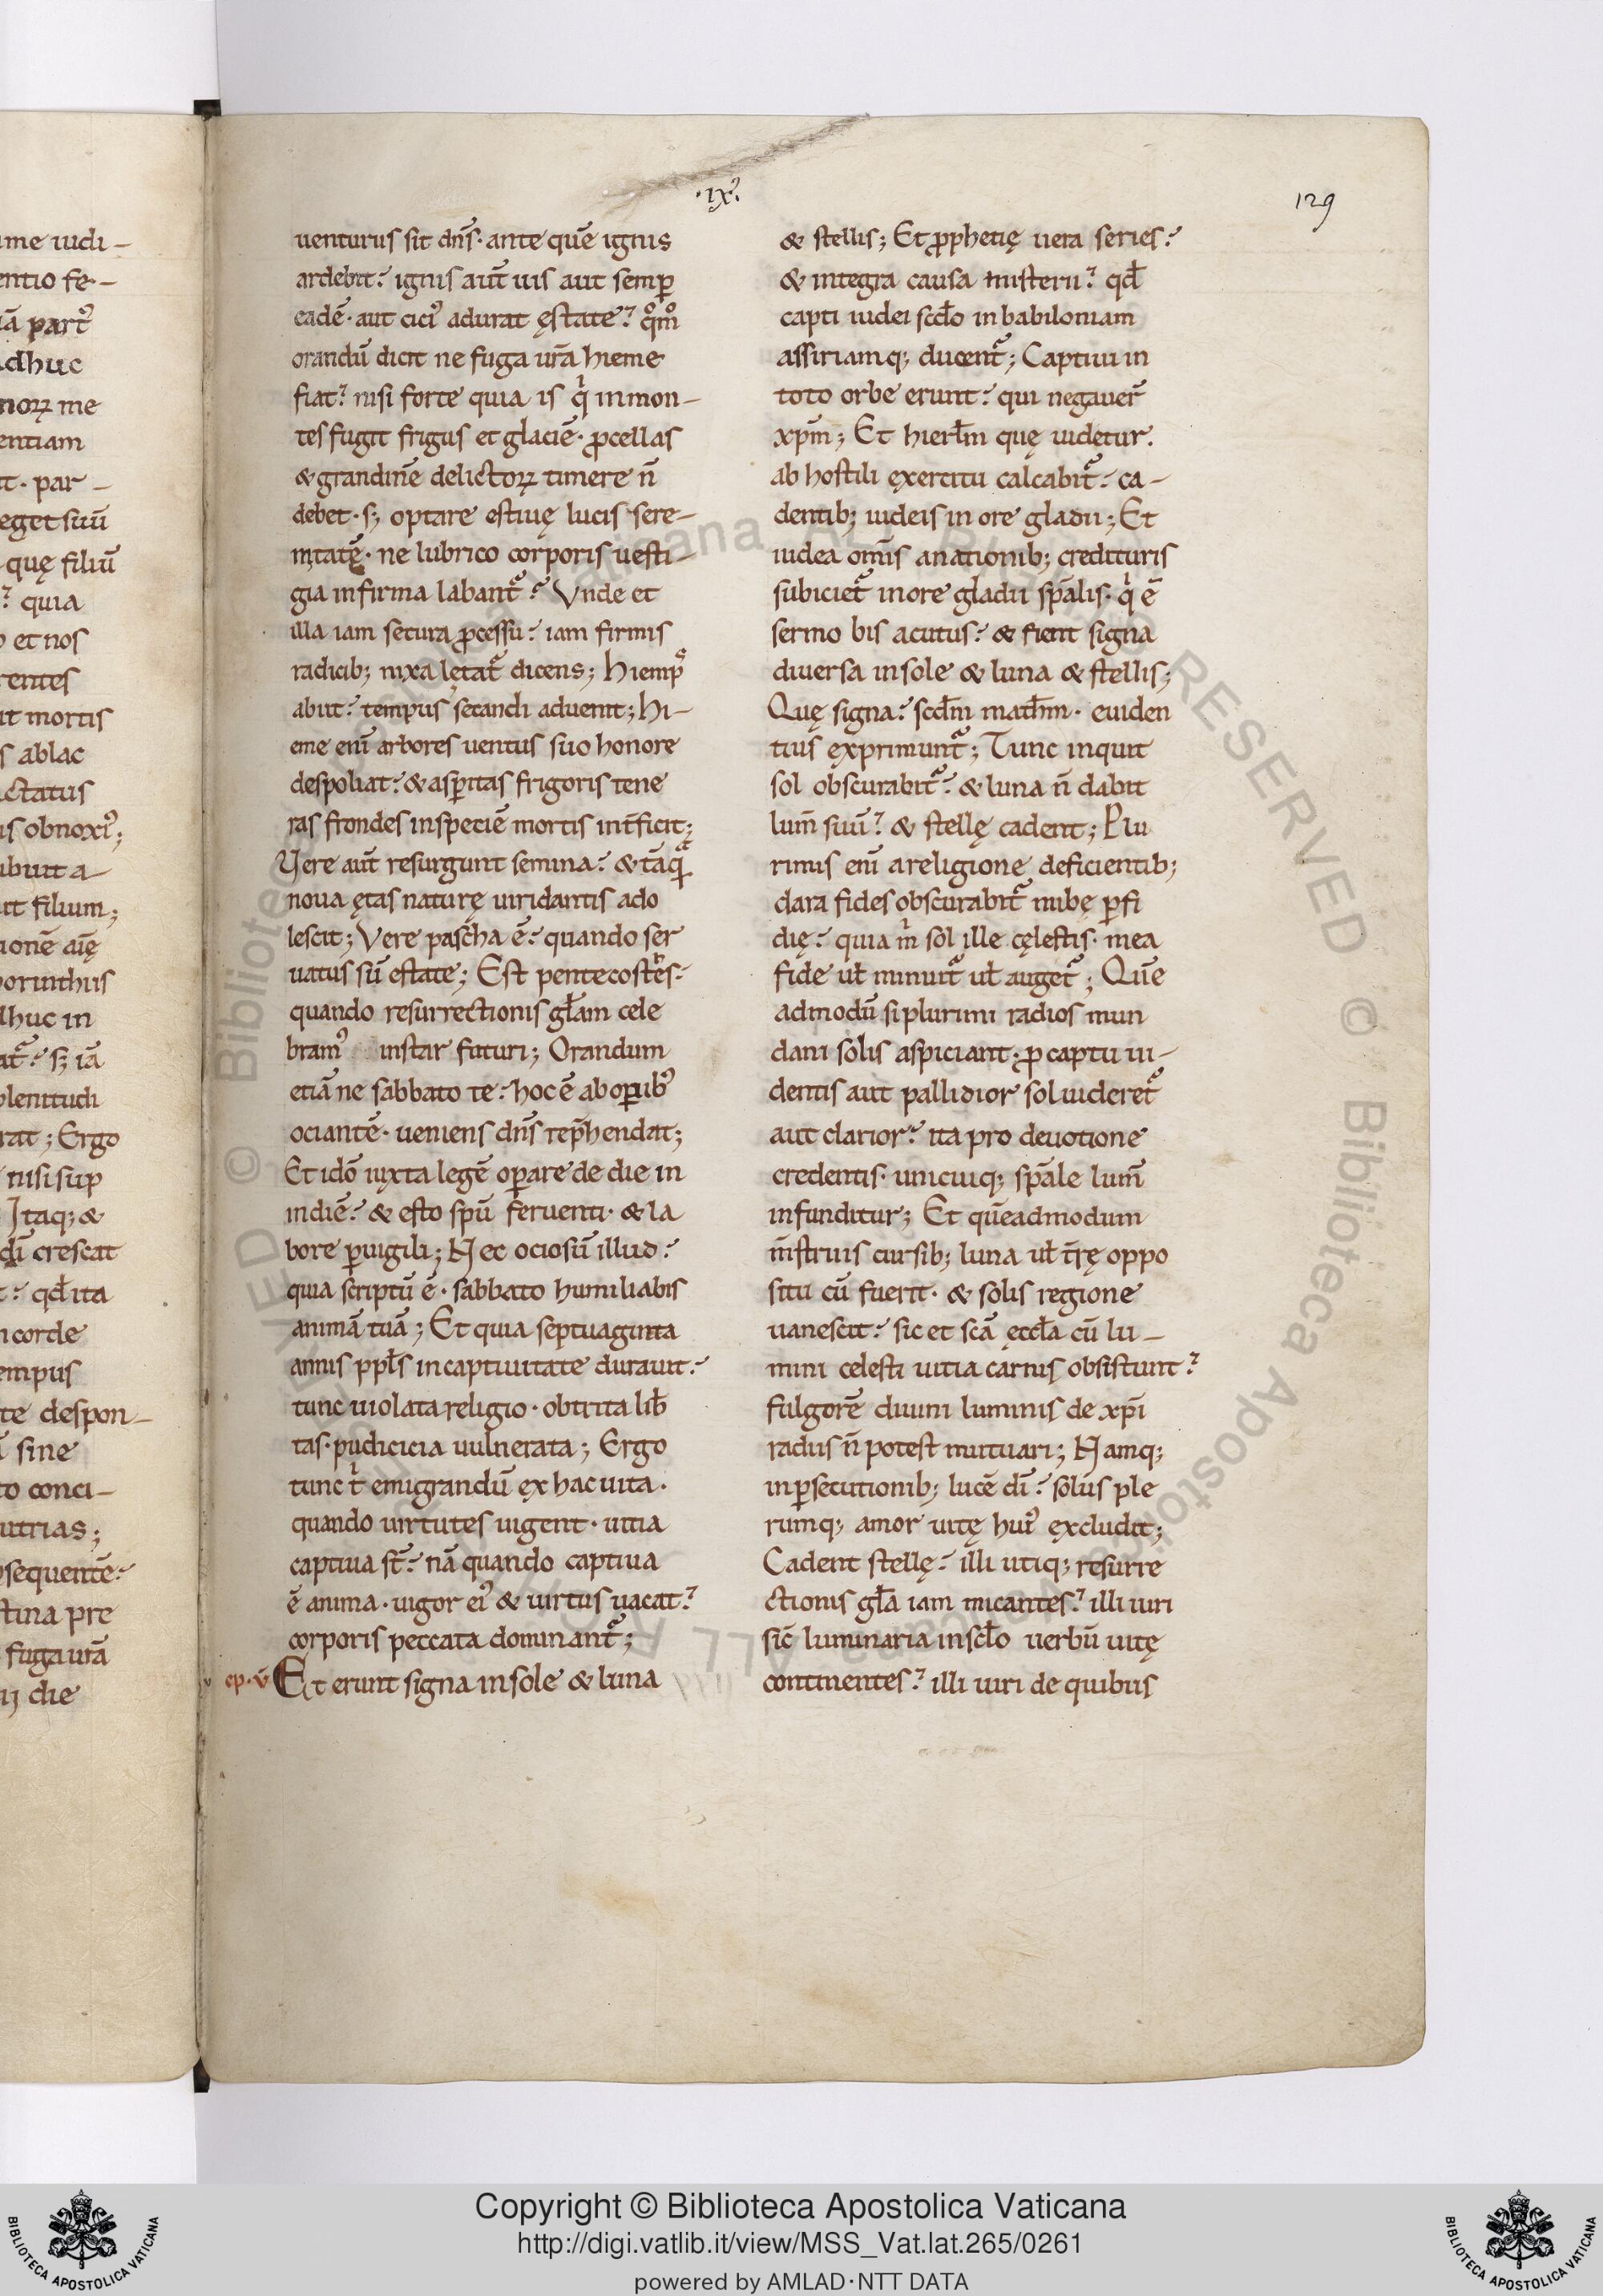 ·IX·
129
ume iudi-
entio fe-
iā part᷒
adhuc
norꝝ me
entiam
it· par-
eget suū
quę filiū
quia
o et nos
rentes
ut mortis
s ablac
ctatus
is obnoxi᷒;
ibuit a-
it filium;
ionē aīę
corinthiis
dhuc in
s; iā
plenitudi
rat; Ergo
nisi sup̱
Itaq; &
di crescat
qd̄ ita
n corde
tempus
te despon-
sine
to conci-
utrias;
sequentē
stina pre
fuga ur̄a
die
uenturus sit dn̄s· ante quē ignis
ardebit? ignis aut̄ uis aut semp̱
eadē· aut cici᷒ adurat ęstate? qͦmͦ
orandū dicit ne fuga ur̄a hieme
fiat? nisi forte quia is qͥ in mon-
tes fugit frigus et glaciē· ꝓcellas
& grandinē delictorꝝ timere n̄
debet· s; optare estiuę lucis sere-
nitatę̄· ne lubrico corporis uesti-
gia infirma labant᷑? Vnde et
illa iam secura ꝓcessu? iam firmis
radicib; nixa lętat᷑ dicens; Hiemp̱s
abiit? tempus secandi aduenit; Hi-
eme enī arbores uentus suo honore
despoliat? & asp̱itas frigoris tene
ras frondes in speciē mortis int̄ficit;
Vere aut̄ resurgunt semina? & tāqͣ
noua ętas naturę uiridantis ado
lescit; Vere pascha ē? quando ser
uatus sū estate; Est pentecostes?
quando resurrectionis gl̄am cele
bram᷒ instar futuri; Orandum
etiā ne sabbato te? hoc ē ab op̱ib᷒
ociantē· ueniens dn̄s rep̄hendat;
Et idō iuxta legē op̱are de die in
in diē? & esto spū feruenti· & la
bore p̱uigili; Nec ociosū illud?
quia scriptū ē· sabbato humiliabis
animā tuā; Et quia septuaginta
annis ppl̄s in captiuitate durauit?
tunc uiolata religio· obtrita lib̄
tas· pudicicia uulnerata; Ergo
tunc t͛ emigrandū ex hac uita·
quando uirtutes uigent· uitia
captiua st̄? nā quando captiua
ē anima· uigor ei᷒ & uirtus uacat?
corporis peccata dominant᷑;
Et erunt signa in sole & luna
& stellis; Et ꝓphetię uera series?
& integra causa misterii? qd̄
capti iudei scd̄o in babiloniam
assiriamq; ducent᷑; Captiui in
toto orbe erunt? qui negauer̄
xpm̄; Et hierl̄m quę uidetur·
ab hostili exercitu calcabit᷑? ca-
dentib; iudeis in ore gladii; Et
iudea om̄is a nationib; credituris
subiciet᷑ in ore gladii spāl̄is· qͥ ē
sermo bis acutus? & fient signa
diuersa in sole & luna & stellis;
Quę signa? scd̄m math̄m· euiden
tius exprimunt᷑; Tunc inquit
sol obscurabit᷑? & luna n̄ dabit
lum̄ suū? & stellę cadent; Plu
rimis enī a religione deficientib;
clara fides obscurabit᷑ nubę p̱fi
dię? quia m͛ sol ille cęlestis· mea
fide ul̄ minuit᷑ ul̄ auget᷑; Quē
admodū si plurimi radios mun
dani solis aspiciant· ꝓ captu ui-
dentis aut pallidior sol uideret᷑
aut clarior? ita pro deuotione
credentis· unicuiq; spāle lum̄
infunditur; Et quēadmodum
m̄struis cursib; luna ul̄ t̄rę oppo
situ cū fuerit· & solis regione
uanescit? sic et scā ęccl̄a cū lu-
mini celesti uitia carnis obsistunt?
fulgorē diuini luminis de xpi̅
radiis n̄ potest mutuari; Namq;
in p̱secutionib; lucē dī? solus ple
rumq; amor uitę hui᷒ excludit;
Cadent stellę? illi utiq; resurre
ctionis gl̄a iam micantes? illi uiri
sic̄ luminaria in scl̄o uerbū uitę
continentes? illi uiri de quibus
Copyright © Biblioteca Apostolica Vaticana
http://digi.vatlib.it/view/MSS_Vat.lat.265/0261
powered by AMLAD·NTT DATA
BIBLIOTECA APOSTOLICA VATICANA
BIBLIOTECA APOSTOLICA VATICANA